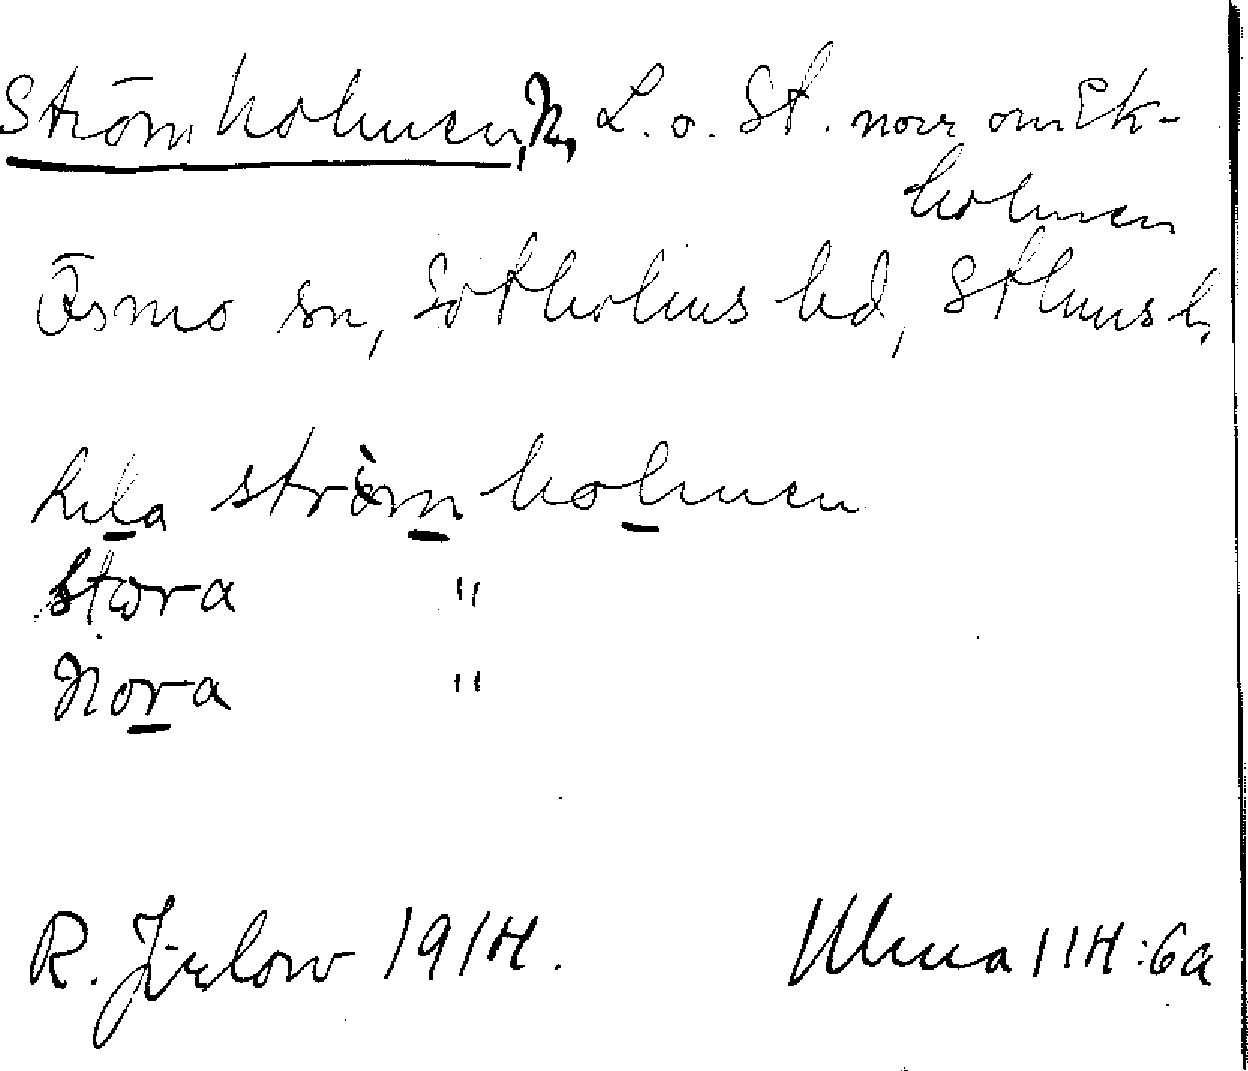 Strömholmen, N, L. o. St. norr om Ek-
holmen
Ösmo sn, Sotholms hd, Sthms l.
lila strömholmen
stora "
Nora "
R. Jirlow 1914.
114:6a